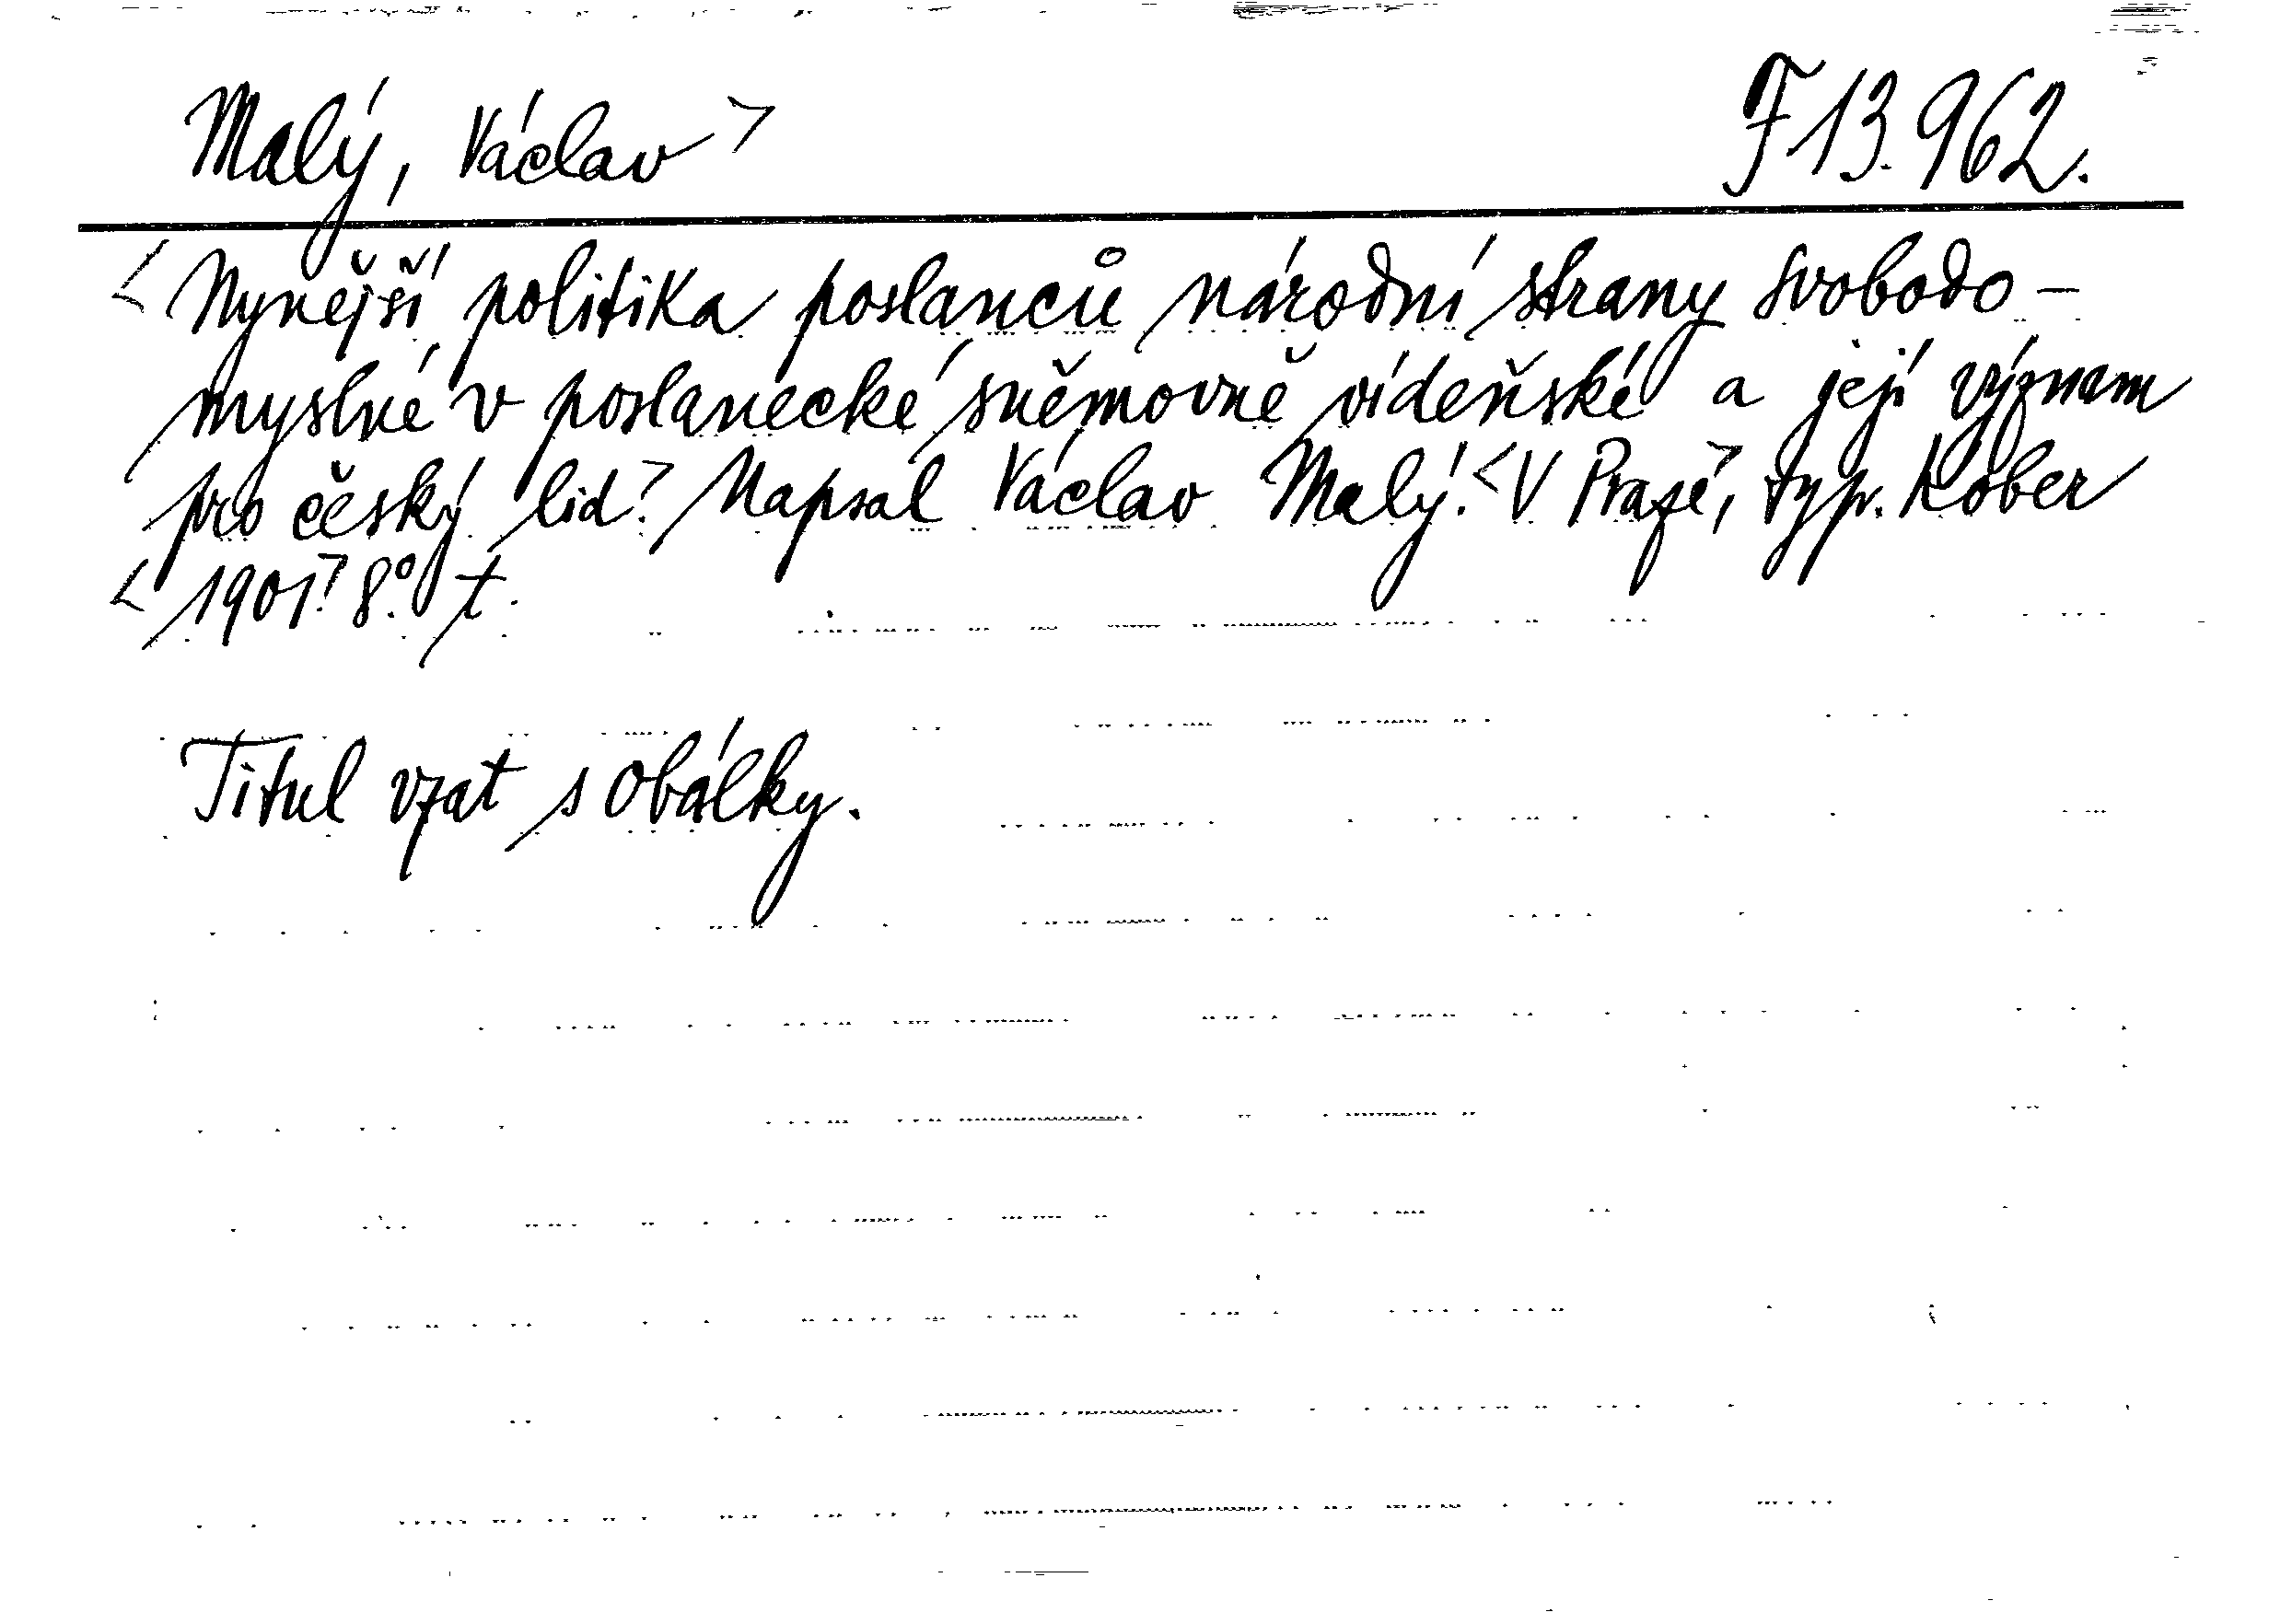 Malý, Václav > F 13.962.
< Nynější politika poslanců národní strany svobodo-
myslné v poslanecké sněmovně vídeňské a její význam
pro český lid.> Napsal Václav Malý. < V Praze>, typ. Kober
< 1901.> 8.° t.
Titul vzat s obálky.